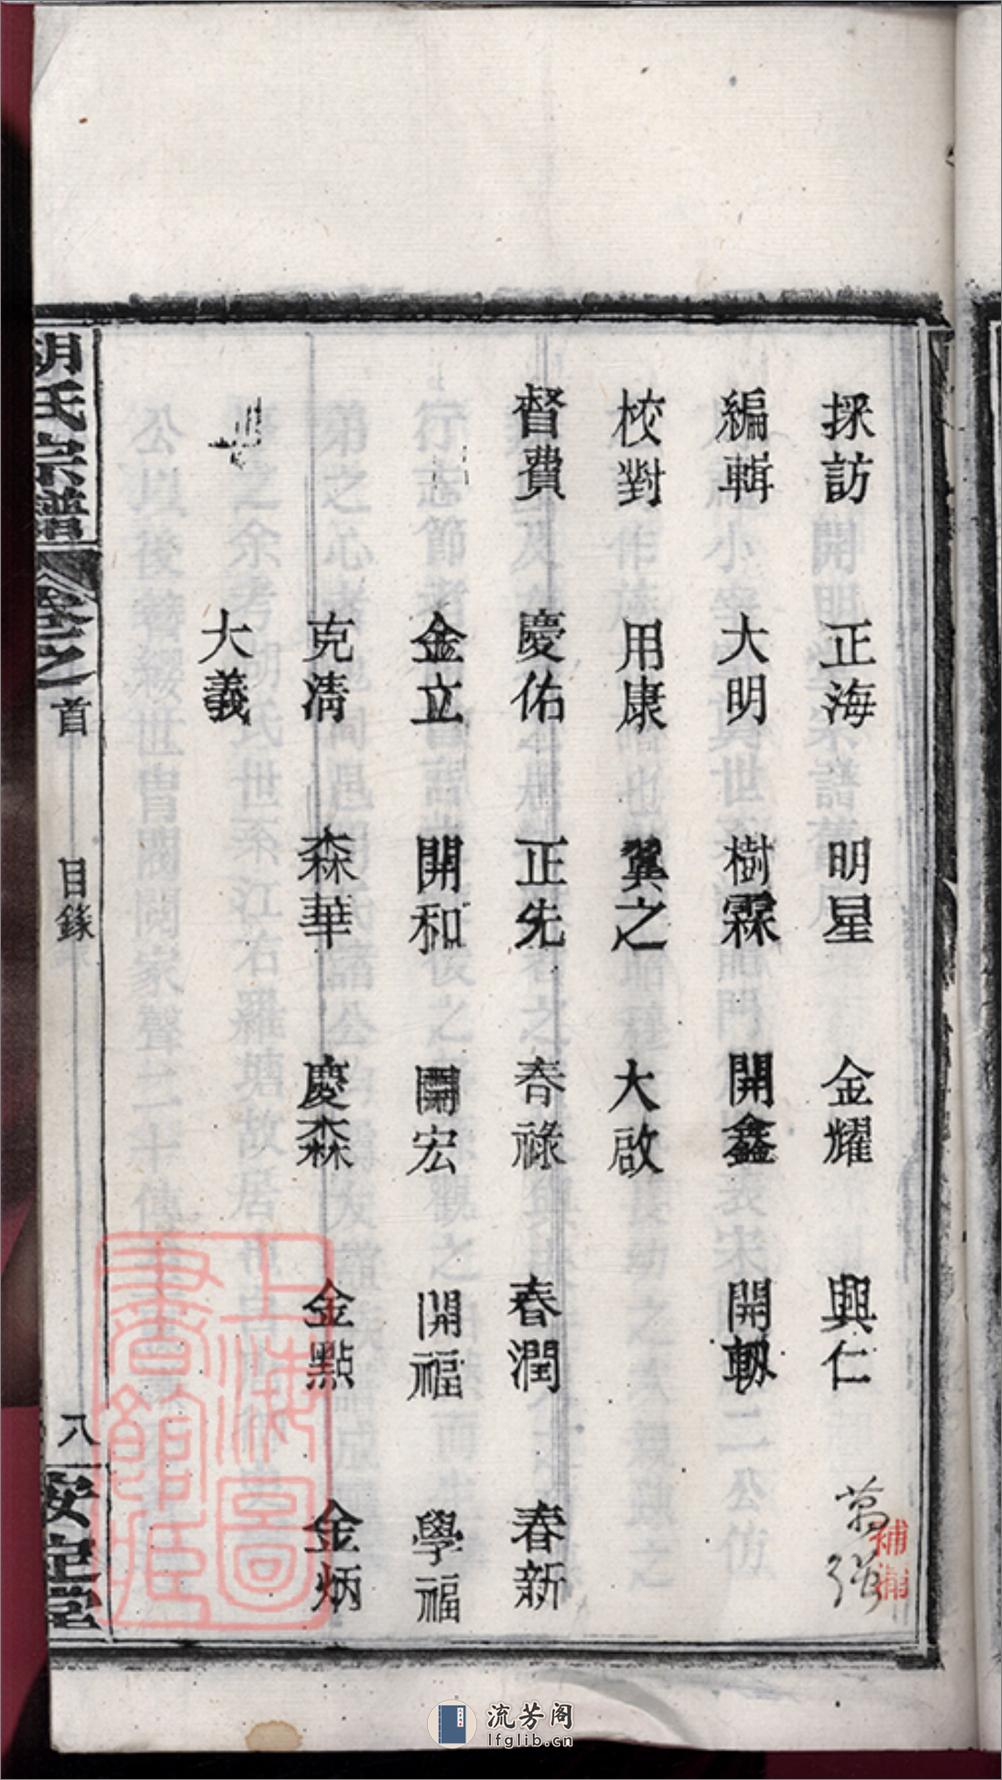 採訪 正海 明星 金耀 興仁 萬強
補漏
編輯 大明 樹霖 開鑫 開
校對 用康 翼之 大啟
督費 慶佑 正先 春祿 春潤 春新
金立 開和 開宏 開福 學福
克清 森華 慶森 金點 金炳
大義
胡氏宗譜 卷之首 目錄 八 安定堂
上海圖書館藏
流芳阁
lfglib.cn